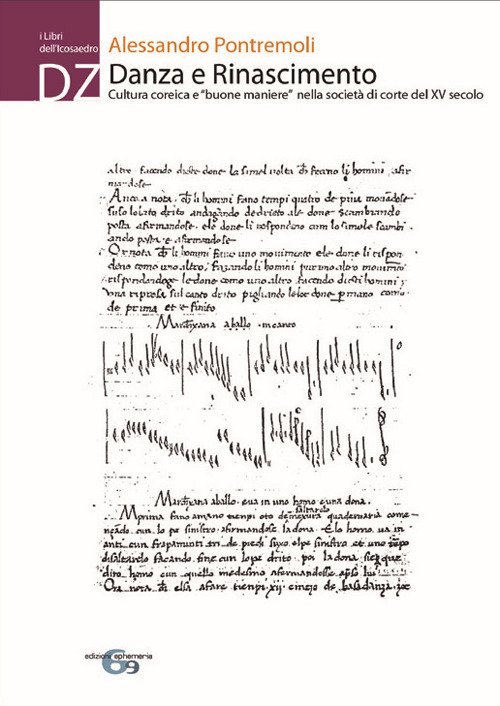 i Libri
dell'Icosaedro
DZ
Alessandro Pontremoli
Danza e Rinascimento
Cultura coreica e "buone maniere" nella società di corte del XV secolo
altro facendo dicte done la simel volta ch feceno li homini, afir
mandose
Anc a nota, ch li homini fano tempi quatro de piva movandose
suso lo lato drito andagando dedrieto ale done scambiando
posta afirmandose, ele done li respondeno cum lo simele scambi
ando posta e afirmandose
Or nota ch li homini fano uno movimento ele done li rispon
deno como uno altro, fazando li homini pur uno altro movimento
rispondandoge le done como uno altro facendo dicti homini
una represa sul canto drito pigliando le lor done per mano como
de prima et e finito
Marchexana a ballo in canto
Marchexana aballo eva in uno homo euna dona.
saltarelo
Mprima fano amano tempi oto de mexura quadernaria comen
çando cun lo pe sinistro afirmandose la dona. E lo homo va in
anti cun frapamenti tri de piedi suxo elpe sinistro et uno tempo
disaltarelo facando fine cun lo pe drito poi la dona sieque
dito homo cun quello medesimo afermandosse apreso lui
Ora nota ch elsa afare tiempi xij cinque de basadanza zoe
edizioni ephemeria
69